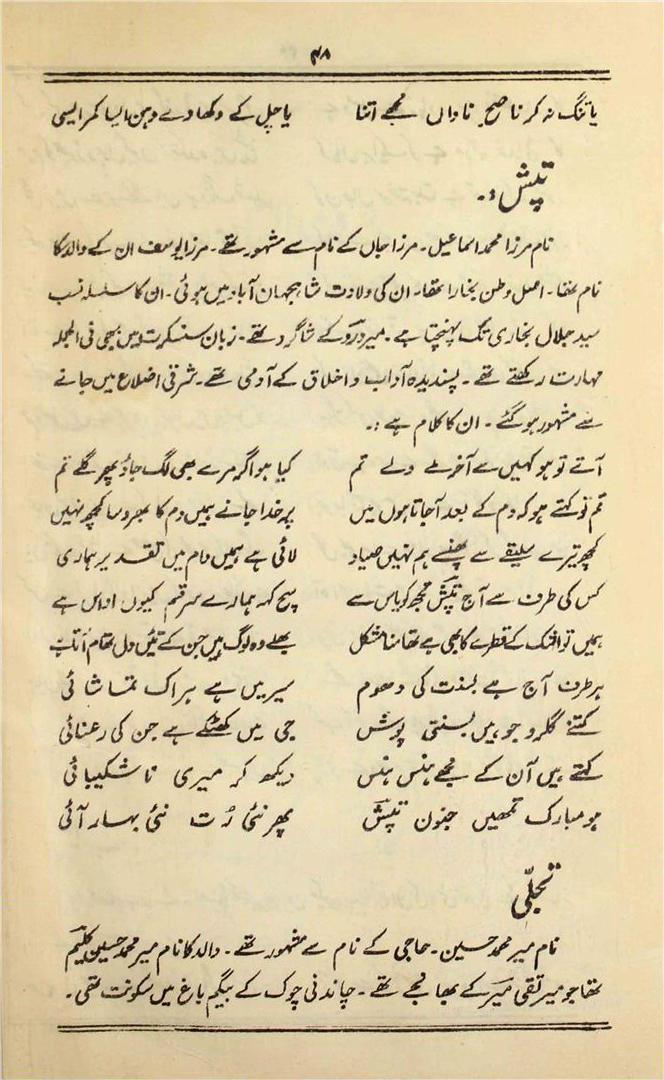 ۴۸
یا تنگ نہ کر ناصح ناداں مجھے اتنا یا چل کے دکھا دے دہن ایسا کمر ایسی
تپش :۔
نام مرزا محمد اسماعیل۔ مرزا جاں کے نام سے مشہور تھے۔ مرزا یوسف ان کے والد کا
نام تھا۔ اصل وطن بخارا تھا۔ ان کی ولادت شاہجہان آباد میں ہوئی۔ ان کا سلسلہ نسب
سید جلال بخاری تک پہنچتا ہے۔ میر درد کے شاگرد تھے۔ زبان سنسکرت میں بھی فی الجملہ
مہارت رکھتے تھے۔ پسندیدہ آداب و اخلاق کے آدمی تھے۔ شرقی اضلاع میں جانے
سے مشہور ہو گئے۔ ان کا کلام ہے :۔
آتے تو ہو کہیں سے آخر ملے دلے تم کیا ہو اگر مرے بھی لگ جاؤ پھر گلے تم
تم تو کہتے ہو کہ دم کے بعد آ جاتا ہوں میں پر خدا جانے ہمیں دم کا بھروسا کچھ نہیں
کچھ تیرے سلیقے سے پھنسے ہم نہیں صیاد لائی ہے ہمیں دام میں تقدیر ہماری
کس کی طرف سے آج تپش تجھ کو یاس ہے سچ کہہ ہمارے سر قسم کیوں اداس ہے
ہمیں تو اشک کے قطرے کا بھی ہے تھامنا مشکل بھلے وہ لوگ ہیں جن کے تئیں دل تھام آتا ہے
ہر طرف آج ہے بسنت کی دھوم سیر میں ہے ہر اک تماشائی
کتنے گلرو جو ہیں بسنتی پوش جی میں کھٹکے ہے جن کی رعنائی
کہتے ہیں آن کے مجھے ہنس ہنس دیکھ کر میری ناشکیبائی
ہو مبارک تمھیں جنون تپش پھر نئی رُت نئی بہار آئی
تجلّی
نام میر محمد حسین۔ حاجی کے نام سے مشہور تھے۔ والد کا نام میر محمد حسین کلیم
تھا جو میر تقی میر کے بھانجے تھے۔ چاندنی چوک کے بیگم باغ میں سکونت تھی۔